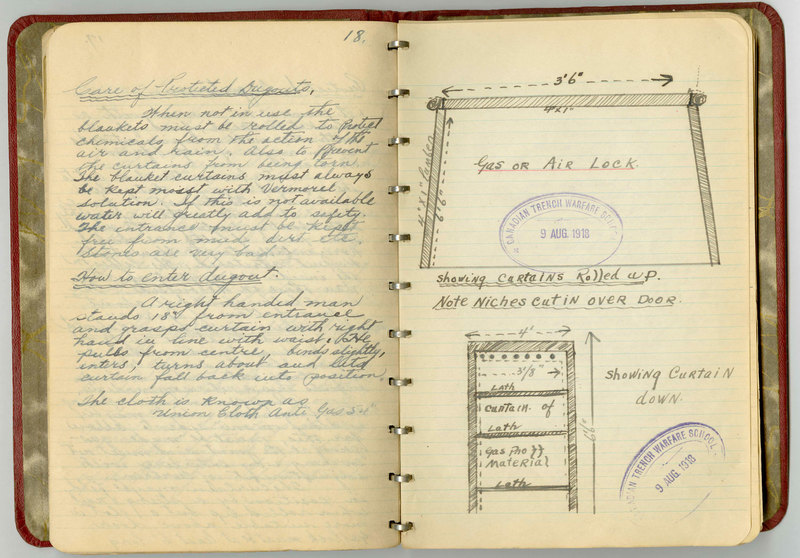 18.
Care of Protected Dugouts,
When not in use the
blankets must be rolled to Protect
chemicals from the action of the
air and rain. Also to Prevent
the curtains from being torn.
The blanket curtains must always
be kept moist with Vermorel
solution. If this is not available
water will greatly add to safety.
The entrance must be kept
free from mud, dirt etc.
Stones are very bad.
How to enter dugout.
A right handed man
stands 18" from entrance
and grasps curtain with right
hand in line with waist. He
pulls from centre, bends slightly,
enters, turns about and lets
curtain fall back into position.
The cloth is known as
Union Cloth Anti Gas
3'6"
4"x1"
6'6"
Gas or Air Lock.
CANADIAN TRENCH WARFARE SCHOOL
9 AUG. 1918
Showing Curtains Rolled up.
Note Niches cut in over Door.
4'
3'8"
Lath
Curtain of
Lath
Gas Proff
Material
Lath
6'6"
Showing Curtain
down.
CANADIAN TRENCH WARFARE SCHOOL
9 AUG. 1918